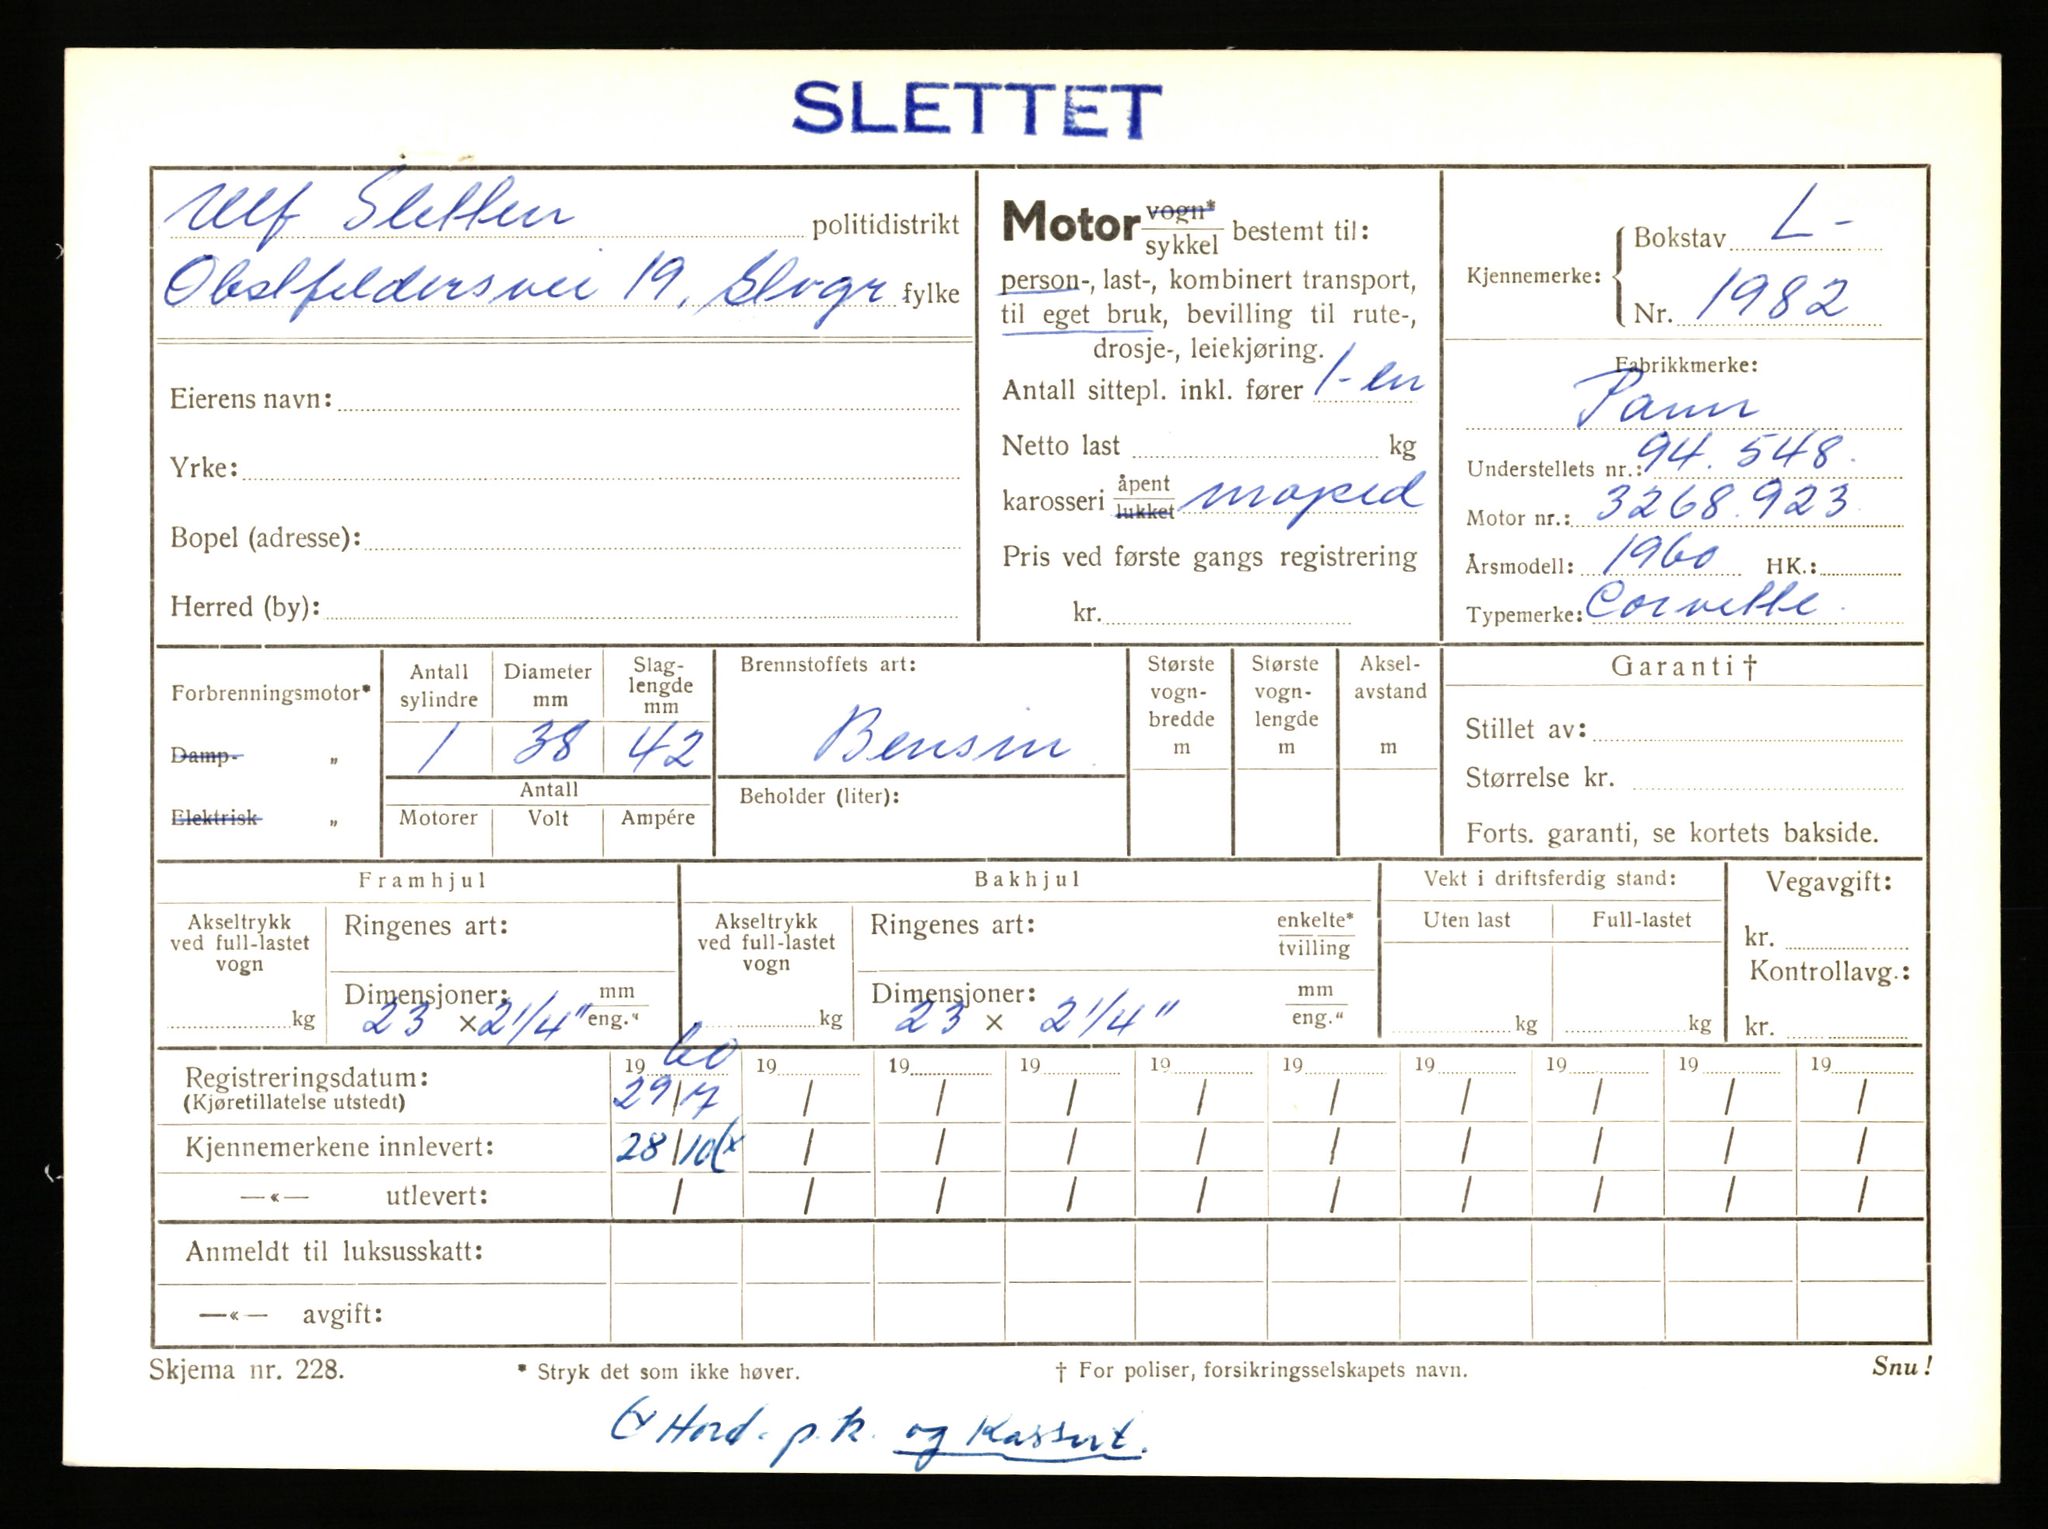 SLETTET
Ulf Sletten politidistrikt
Obstfeldersvei 19, Stvgr fylke
Eierens navn:
Yrke:
Bopel (adresse):
Herred (by):
Motor vogn* / sykkel bestemt til:
person-, last-, kombinert transport,
til eget bruk, bevilling til rute-,
drosje-, leiekjøring.
Antall sittepl. inkl. fører 1-en
Netto last kg
karosseri åpent / lukket moped
Pris ved første gangs registrering
kr.
Kjennemerke: Bokstav L-
Nr. 1982
Fabrikkmerke:
Understellets nr.: 94.548.
Motor nr.: 3268.923
Årsmodell: 1960 HK.:
Typemerke: Corvette.
Forbrenningsmotor*
Damp- „
Elektrisk „
Antall sylindre Diameter mm Slag-lengde mm
1 38 42
Antall
Motorer Volt Ampére
Brennstoffets art:
Bensin
Beholder (liter):
Største vogn-bredde m
Største vogn-lengde m
Aksel-avstand m
Garanti †
Stillet av:
Størrelse kr.
Forts. garanti, se kortets bakside.
Framhjul
Akseltrykk ved full-lastet vogn kg
Ringenes art:
Dimensjoner: mm / eng."
23 x 2 1/4"
Bakhjul
Akseltrykk ved full-lastet vogn kg
Ringenes art: enkelte* / tvilling
Dimensjoner: mm / eng."
23 x 2 1/4"
Vekt i driftsferdig stand:
Uten last Full-lastet
kg kg
Vegavgift:
kr.
Kontrollavg.:
kr.
19 60 19 19 19 19 19 19 19 19 19
Registreringsdatum: 29/7 / / / / / / / / /
(Kjøretillatelse utstedt)
Kjennemerkene innlevert: 28/10 (x / / / / / / / / /
—«— utlevert: / / / / / / / / / /
Anmeldt til luksusskatt:
—«— avgift:
Skjema nr. 228. * Stryk det som ikke høver. † For poliser, forsikringsselskapets navn. Snu!
(x Hord. p.k. og Kassert.